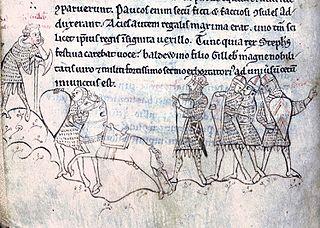 paruerunt. Paucos enim secū ficti & factiosi ɔsules ad
duxerant. Acies autem regalis maxima erat. uno tm̄ sci
licet ipsius regis insignita uexillo. Tunc quia rex Steph̄s
festiua carebat uoce. baldewino filio Gilleb̄ magne nobili
tatis uiro & militi fortissimo sermo exhortatorius ad uniuersū cetū
iniunctus est.